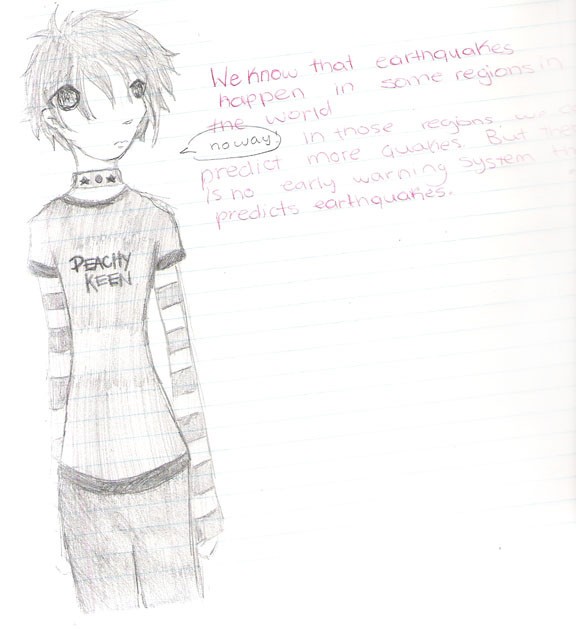 We know that earthquakes
happen in some regions in
the world
no way.
in those regions we
predict more quakes. But
is no early warning system
predicts earthquakes.
PEACHY
KEEN